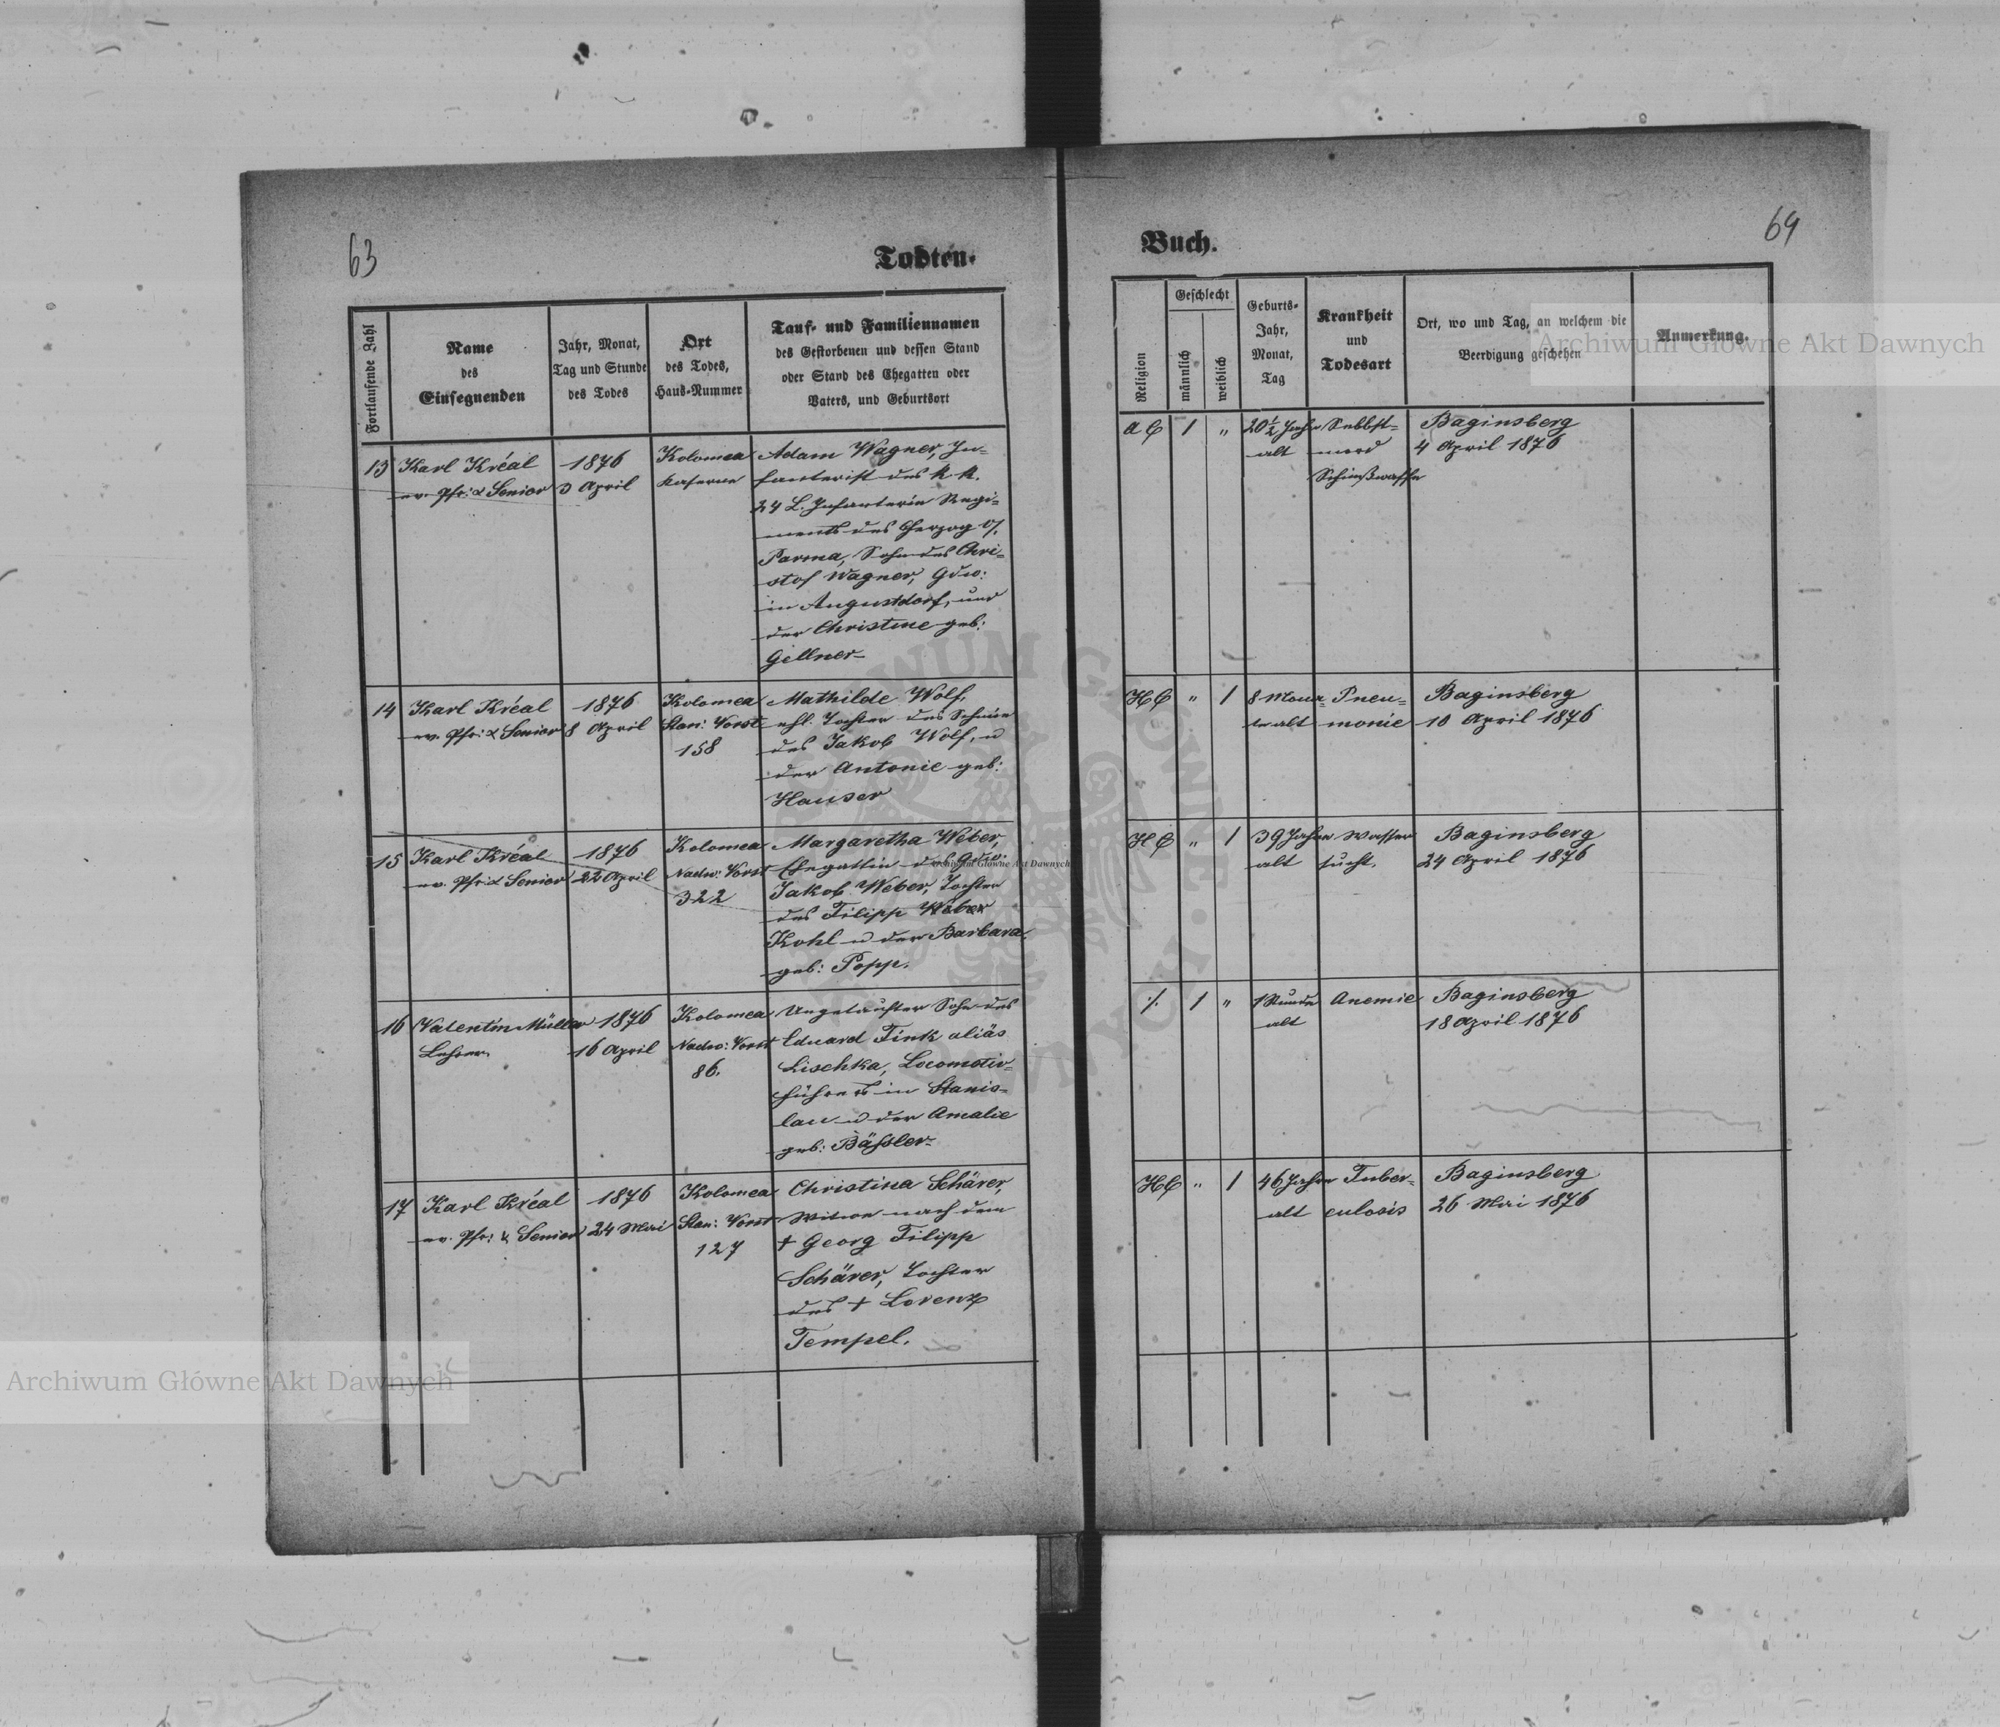 63
Todten-
Fortlaufende Zahl
Name
des
Einsegnenden
Jahr, Monat,
Tag und Stunde
des Todes
Ort
des Todes,
Haus-Nummer
Tauf- und Familiennamen
des Gestorbenen und dessen Stand
oder Stand des Ehegatten oder
Vaters, und Geburtsort
13
Karl Kréal
ev. Pfr: & Senior
1876
3 April
Kolomea
Kaserne
Adam Wagner, In-
fanterist des k. k.
24 L. Infanterie Regi-
ments des Herzog v.
Parma, Sohn des Chri-
stof Wagner, Gdw:
in Augustdorf, und
der Christine geb:
Gellner
14
Karl Kréal
ev. Pfr: & Senior
1876
8 April
Kolomea
Stan: Vorst
158
Mathilde Wolf,
ehl. Tochter des
des Jakob Wolf, u
der Antonie geb:
Hauser
15
Karl Kréal
ev. Pfr: & Senior
1876
22 April
Kolomea
Nadw: Vorst
322
Margaretha Weber,
Ehegattin des Gdw:
Jakob Weber, Tochter
des Filipp Weber
Kohl u der Barbara
geb: Popp.
16
Valentin Müller
Lehrer
1876
16 April
Kolomea
Nadw: Vorst
86.
Ungetaufter Sohn des
Eduard Fink aliäs
Lischka, Locomotiv-
führers in Stanis-
lau u der Amalie
geb: Bäßler
17
Karl Kréal
ev. Pfr: & Senior
1876
24 Mai
Kolomea
Stan: Vorst
127
Christina Schärer,
Witwe nach dem
+ Georg Filipp
Schärer, Tochter
des + Lorenz
Tempel.
Buch.
64
Religion
Geschlecht
männlich
weiblich
Geburts-
Jahr,
Monat,
Tag
Krankheit
und
Todesart
Ort, wo und Tag, an welchem die
Beerdigung geschehen
Anmerkung.
A C
1
"
20 1/2 Jahre
alt
Selbst-
mord
Schießwaffe
Baginsberg
4 April 1876
H C
"
1
8 Mona-
te alt
Pneu-
monie
Baginsberg
10 April 1876
H C
"
1
39 Jahre
alt
Wasser
sucht.
Baginsberg
24 April 1876
./.
1
"
1 Stunde
alt
Anemie
Baginsberg
18 April 1876
H C
"
1
46 Jahre
alt
Tuber-
culosis
Baginsberg
26 Mai 1876
Archiwum Główne Akt Dawnych
Archiwum Główne Akt Dawnych
Archiwum Główne Akt Dawnych